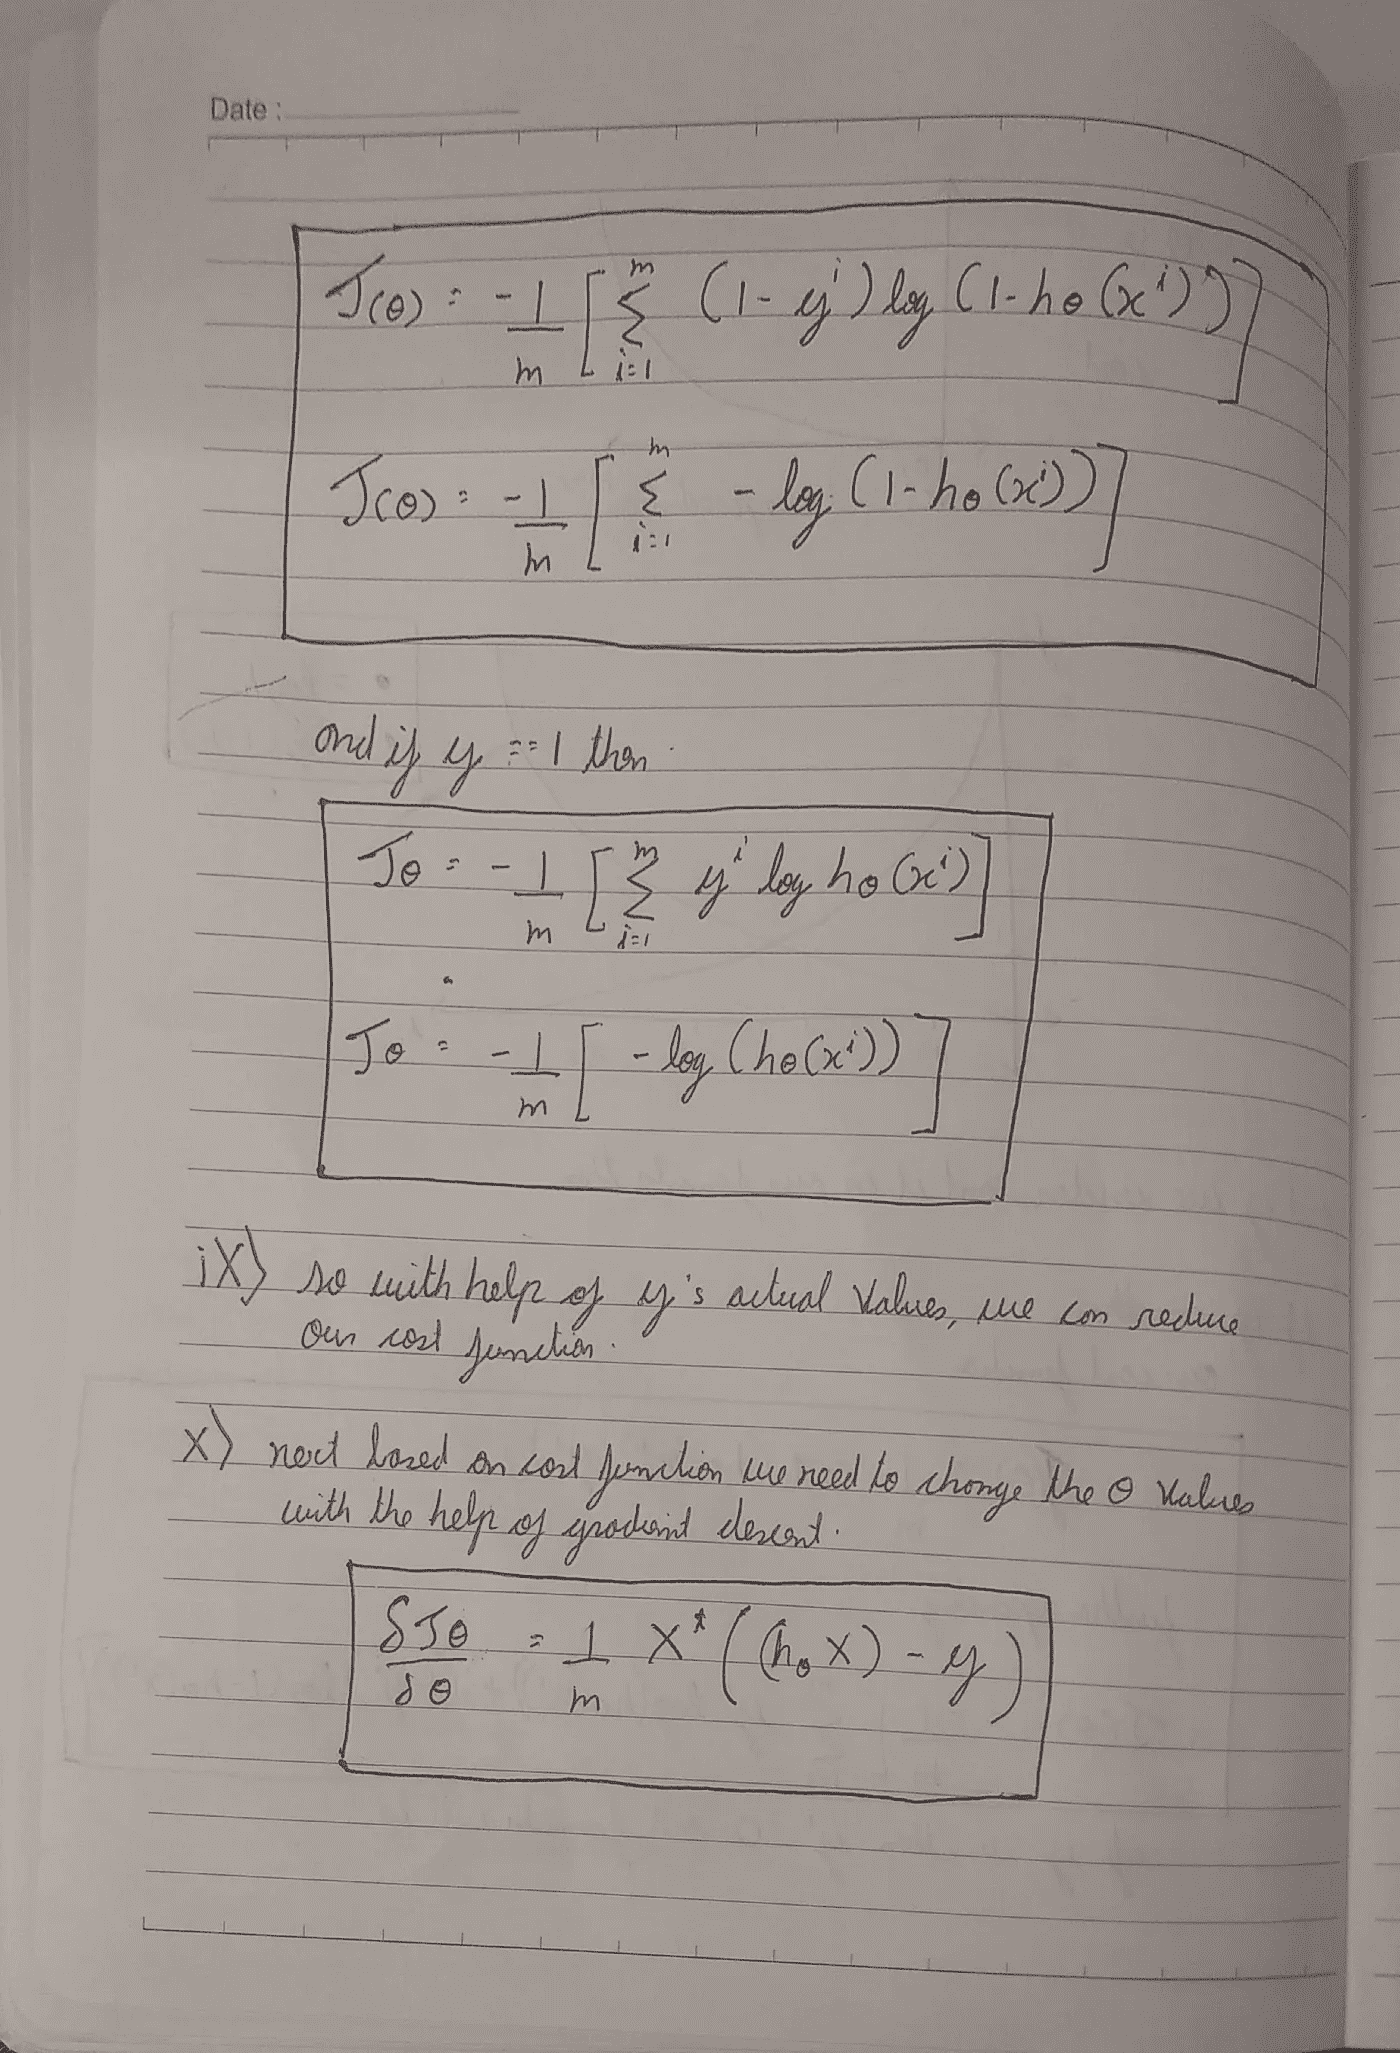 Date :
J(θ) = -1/m [ m Σ i=1 (1 - y^i) log (1 - hθ(x^i)) ]
J(θ) = -1/m [ m Σ i=1 - log (1 - hθ(x^i)) ]
and if y == 1 then
Jθ = -1/m [ m Σ i=1 y^i log hθ(x^i) ]
Jθ = -1/m [ - log (hθ(x^i)) ]
ix) so with help of y's actual values, we can reduce
our cost function.
x) next based on cost function we need to change the θ values
with the help of gradient descent.
δJθ/δθ = 1/m X* ((hθ X) - y)